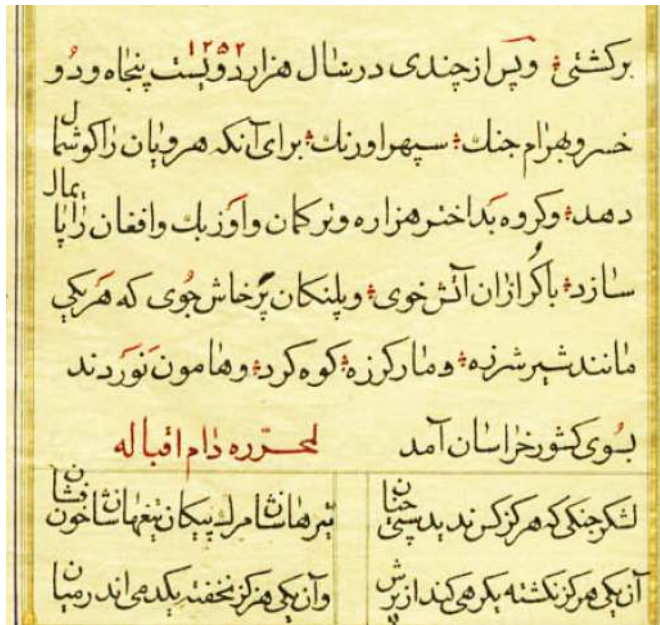 برکشتی وپس از چندی در سال هزار دویست پنجاه ودو ۱۲۵۲
خسرو بهرام جنك سپهر اورنك برای آنکه هرویان را کوشمال
دهد وکروه بداختر هزاره وترکمان واوزبك وافغان را پایمال
سازد باکرازان آتش خوی وپلنکان پرخاش جوی که هریکی
مانند شیر شرزه ومار کرزه کوه کرد وهامون نوردند
بسوی کشور خراسان آمد لمحرّره دام اقباله
لشکر جنکی که هرکز کس ندیدستی چنان
تیرهاشان مرك پیکان تیغهاشان خون فشان
آن یکی هرکز نکشته یکرهی کند از برش
وآن یکی هرکز نخفته یکدمی اندر میان